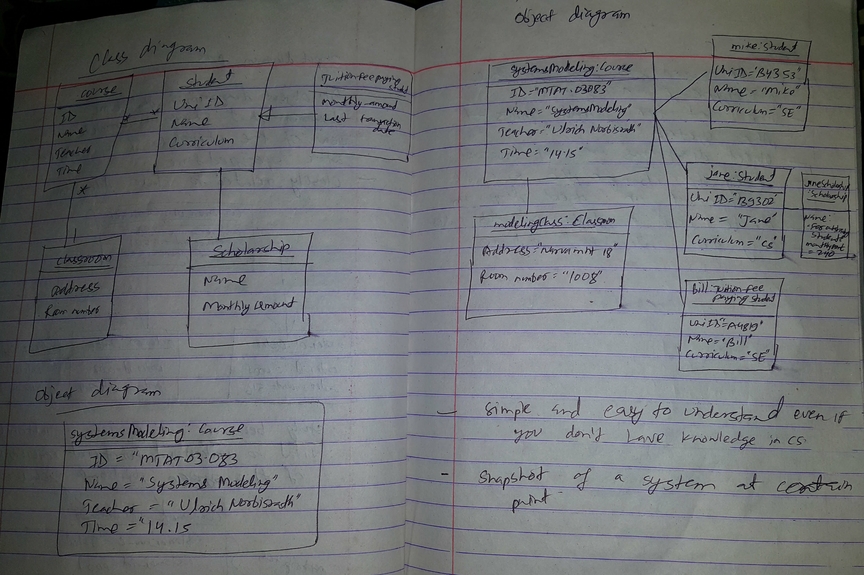 Class diagram
Course
ID
Name
Teacher
Time
Student
Uni ID
Name
Curriculum
Tuition fee paying
student
monthly amount
Last transaction
date
*
*
*
Classroom
Address
Room number
Scholarship
Name
Monthly amount
Object diagram
systemsModeling: Course
ID = "MTAT.03.083
Name = "Systems Modeling"
Teacher = "Ulrich Norbisrath"
Time = "14.15
Object diagram
systemsModeling: Course
ID = "MTAT.03083"
Name = "SystemsModeling"
Teacher = "Ulrich Norbisrath"
Time = "14.15"
modelingClass: Classroom
Address = "Narva mnt 18"
Room number = "1008"
mike: Student
Uni ID = "B4353"
Name = "Mike"
Curriculum = "SE"
jane: Student
Uni ID = "B9302"
Name = "Jane"
Curriculum = "CS"
Scholarship
Name=
student"
= 240
Bill: Tuition fee
paying student
Uni ID = "A4819"
Name = "Bill"
Curriculum = "SE"
- simple and easy to understand even if
you don't have knowledge in cs.
- snapshot of a system at certain
point